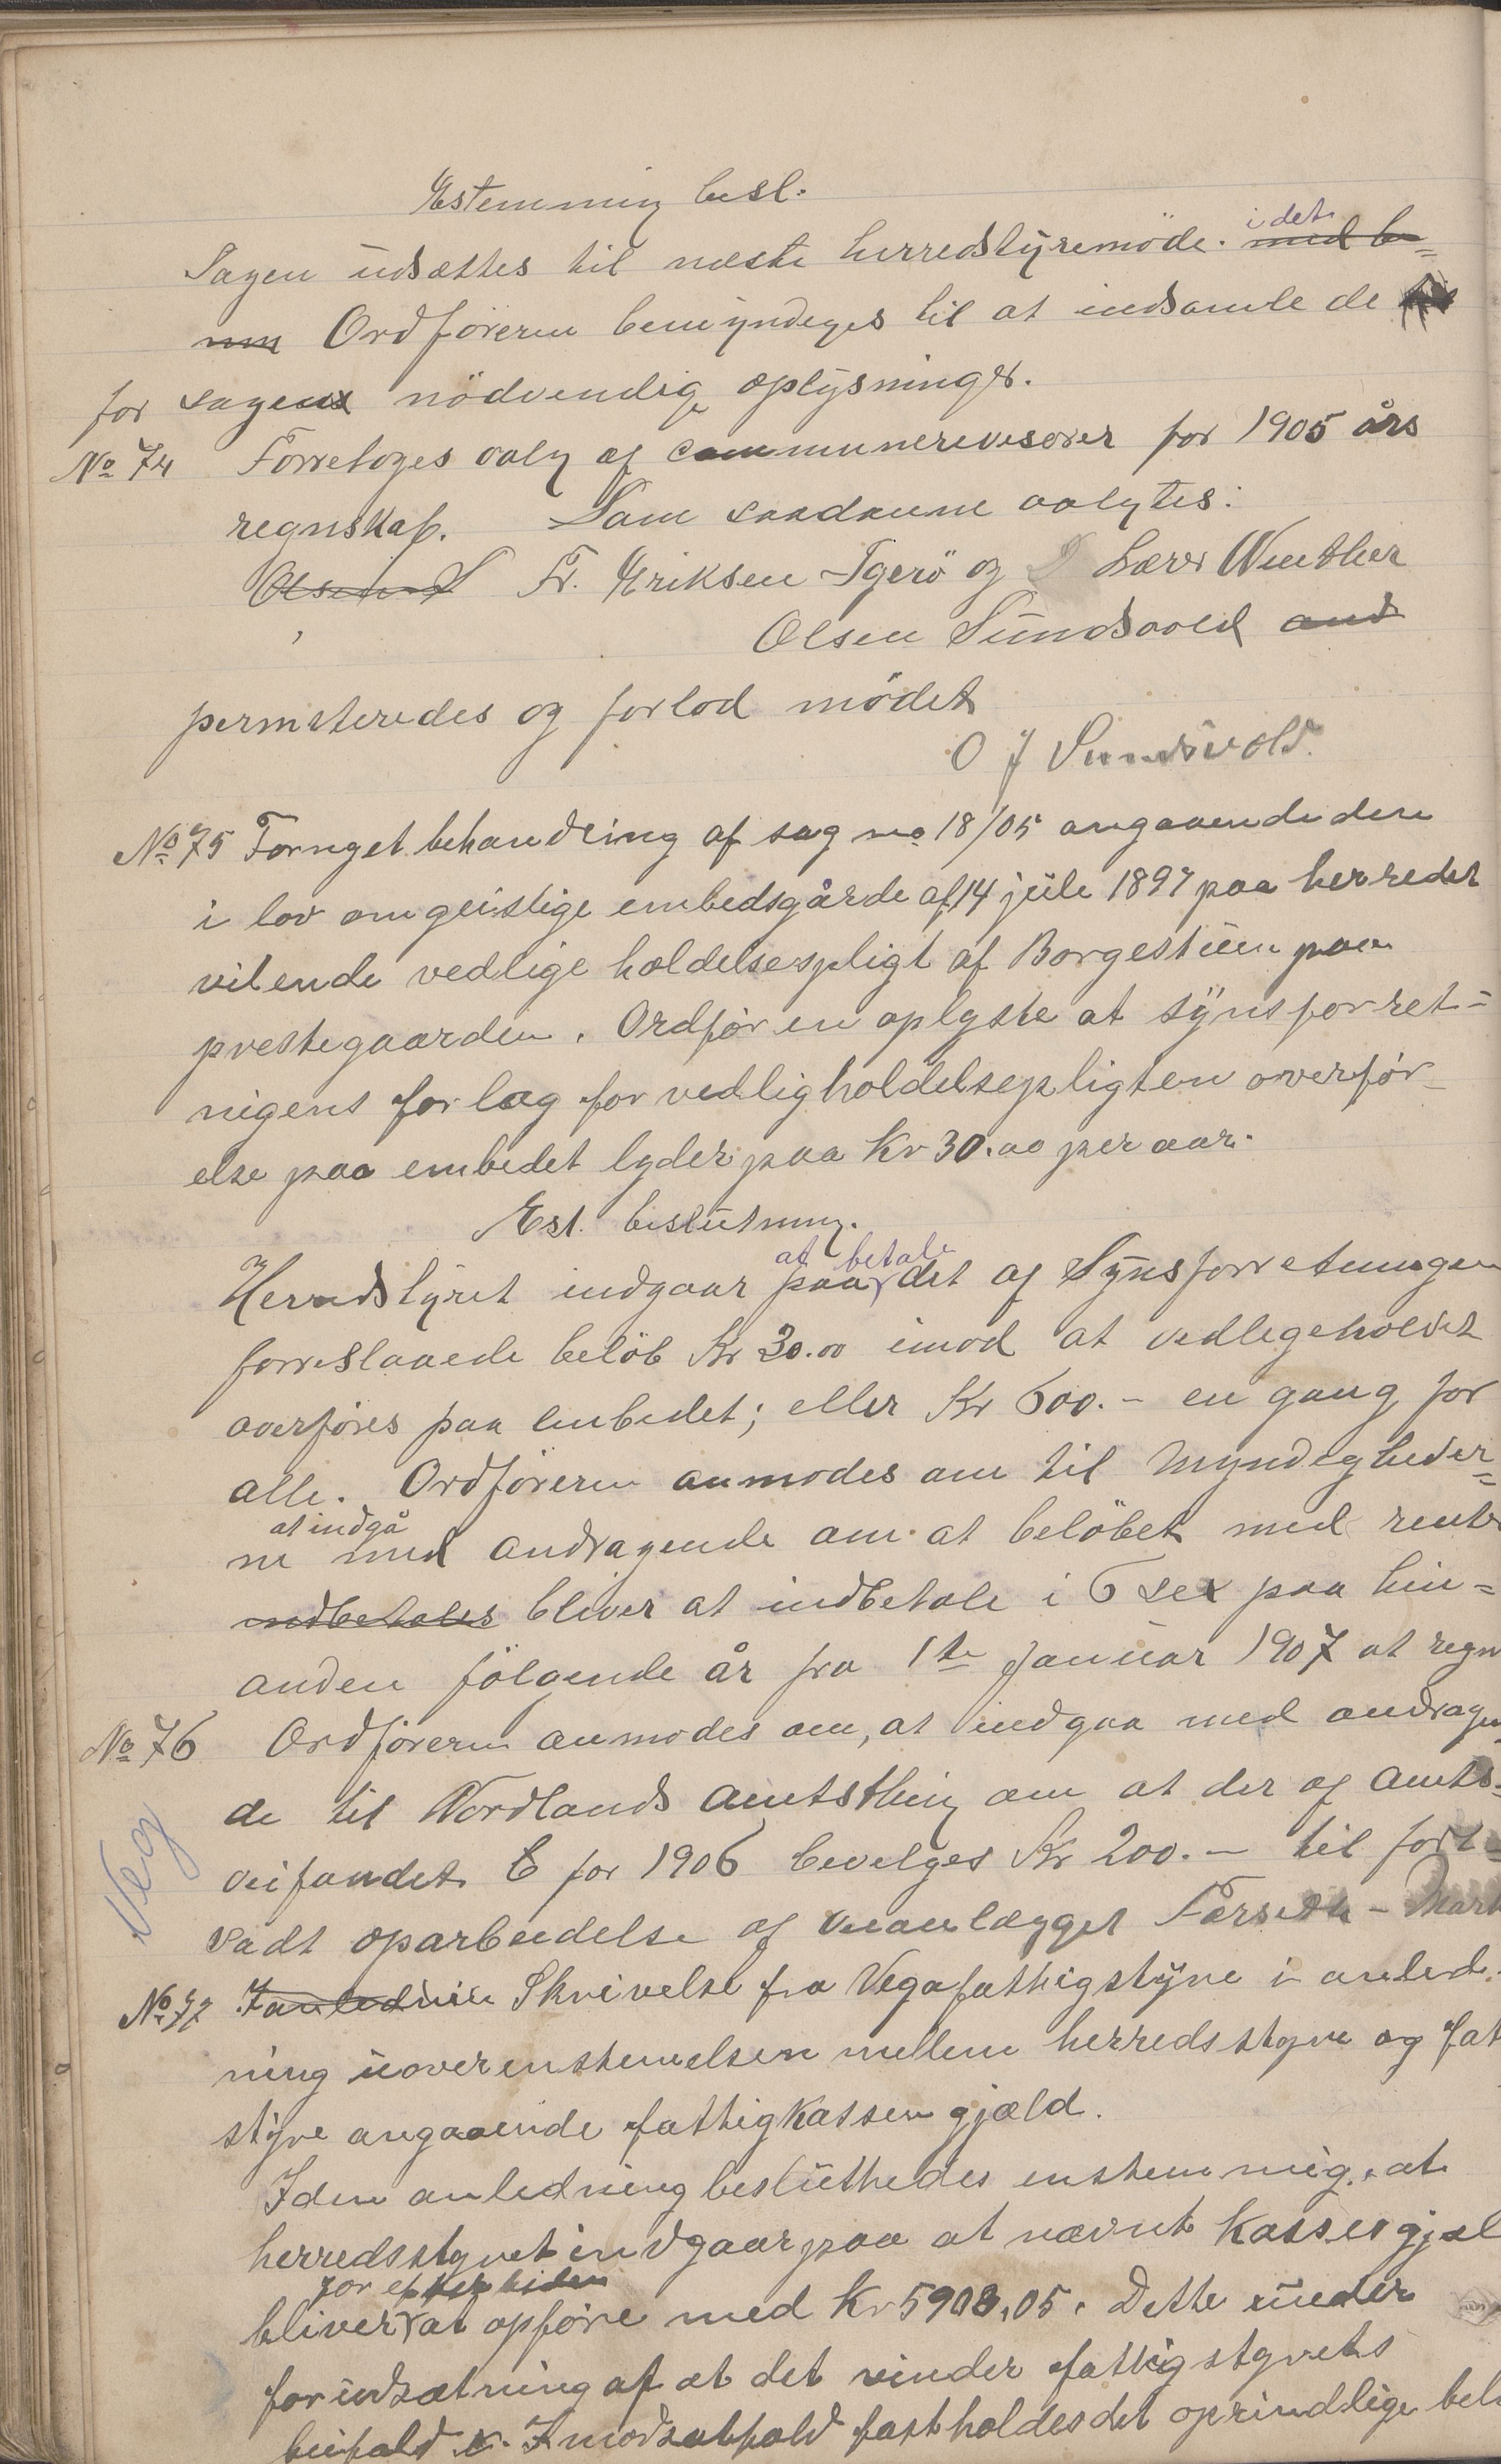 Estemmig besl.
Sagen udsættes til næste herredstyremöde. i det med be-
nm Ordföreren bemyndeges til at indsamle de
for sagens nödvendige oplysninger.
No 74 Forretoges valg af communerevisorer for 1905 års
regnskap. Som saadanne valgtes:
Olsen S Fr. Eriksen Igerö og Lærer Winther
Olsen Sundsvold and
permiteredes og forlod mödet
O J Sundsvold.
No 75 Fornyet behandling af sag no 18/05 angaaende den
i lov om geistlige embedsgårde af 14 juli 1897 paa herredet
vilende vedlige holdelsespligt af Borgestuen paa
prestegaarden. Ordføren oplyste at synsforret-
nigens forlag for vedligholdelsepligten overfør-
else paa embedet lyder paa Kr 30.00 per aar.
Est. beslutning.
Herredstyret indgaar paa at betale det af Synsforretningen
forreslaaede belöb Kr 30.00 imod at vedlegeholdet
overföres paa embedet; eller Kr 600.- en gang for
alle. Ordföreren anmodes om til myndigheder-
ne at indgå med andragende om at belöbet med renter
indbetales bliver at indbetale i 6 sex paa hin-
anden fölgende år fra 1te Januar 1907 at regn
No 76 Ordföreren anmodes om, at indgaa med andragen
de til Nordlands amtsthing om at der af amts-
veifondet C for 1906 bevelges Kr 200.- til fort-
Veg
sadt oparbeidelse af veianlægget Færseth - Mark
No 77 I anledniu Skrivelse fra Vega fathigstyre i anled-
ning uoverenstemelsen mellem herredsstyre og fat
styre angaaende fattigkassen gjæld.
I den anledning besluthedes enstemmig, at
herredsstyret indgaar paa at nævnt kasses gjæl
bliver for eftertiden at opføre med Kr 5908,05. Dette under
forudsætning af at det vinder fattigstyrets
beifald. I modsatfald fastholdes det oprindlige belø